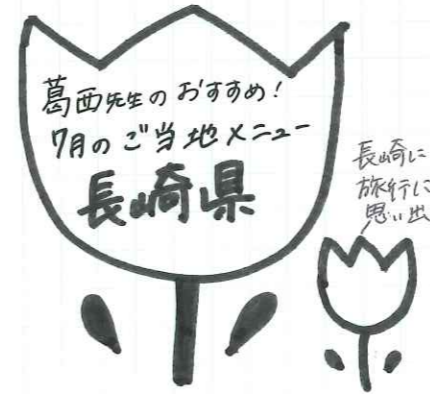 葛西先生のおすすめ！
7月のご当地メニュー
長崎県
長崎に
旅行に
思い出